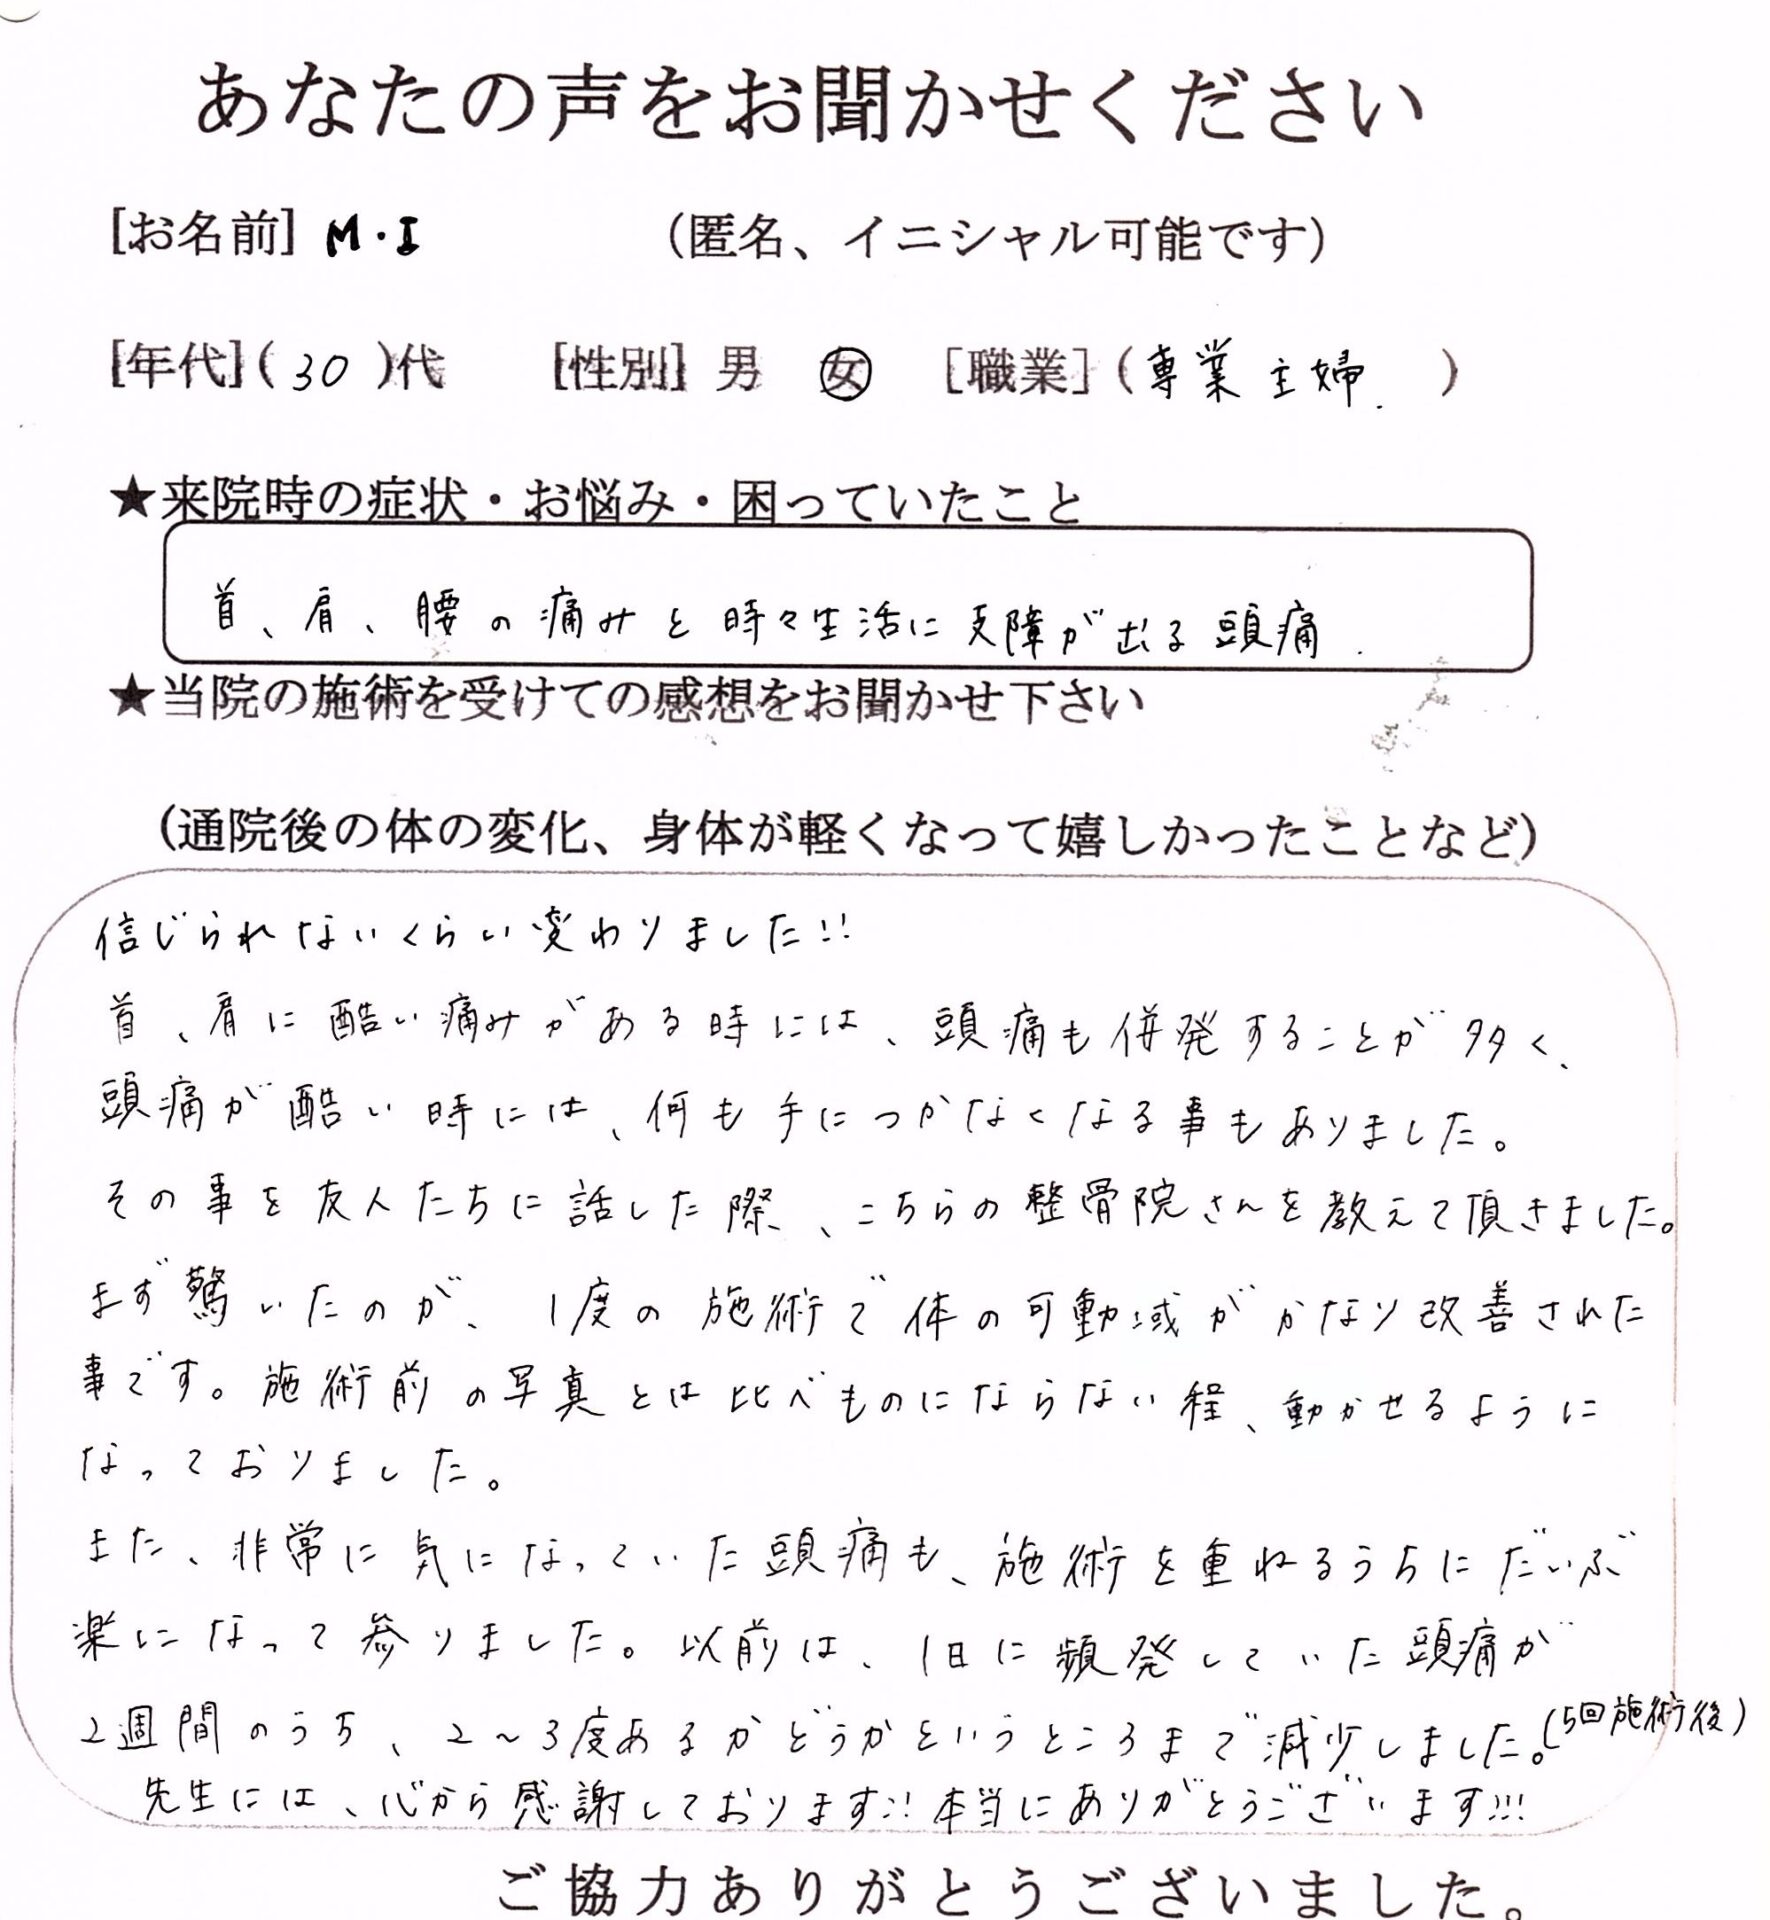 あなたの声をお聞かせください
[お名前] M・I (匿名、イニシャル可能です)
[年代](30)代 [性別] 男 女 [職業](専業主婦.)
★来院時の症状・お悩み・困っていたこと
首、肩、腰の痛みと時々生活に支障が出る頭痛.
★当院の施術を受けての感想をお聞かせ下さい
(通院後の体の変化、身体が軽くなって嬉しかったことなど)
信じられないくらい変わりました!!
首、肩に酷い痛みがある時には、頭痛も併発することが多く、
頭痛が酷い時には、何も手につかなくなる事もありました。
その事を友人たちに話した際、こちらの整骨院さんを教えて頂きました。
まず驚いたのが、1度の施術で体の可動域がかなり改善された
事です。施術前の写真とは比べものにならない程、動かせるように
なっておりました。
また、非常に気になっていた頭痛も、施術を重ねるうちにだいぶ
楽になって参りました。以前は、1日に頻発していた頭痛が
2週間のうち、2〜3度あるかどうかというところまで減少しました。(5回施術後)
先生には、心から感謝しております!!本当にありがとうございます!!!
ご協力ありがとうございました。